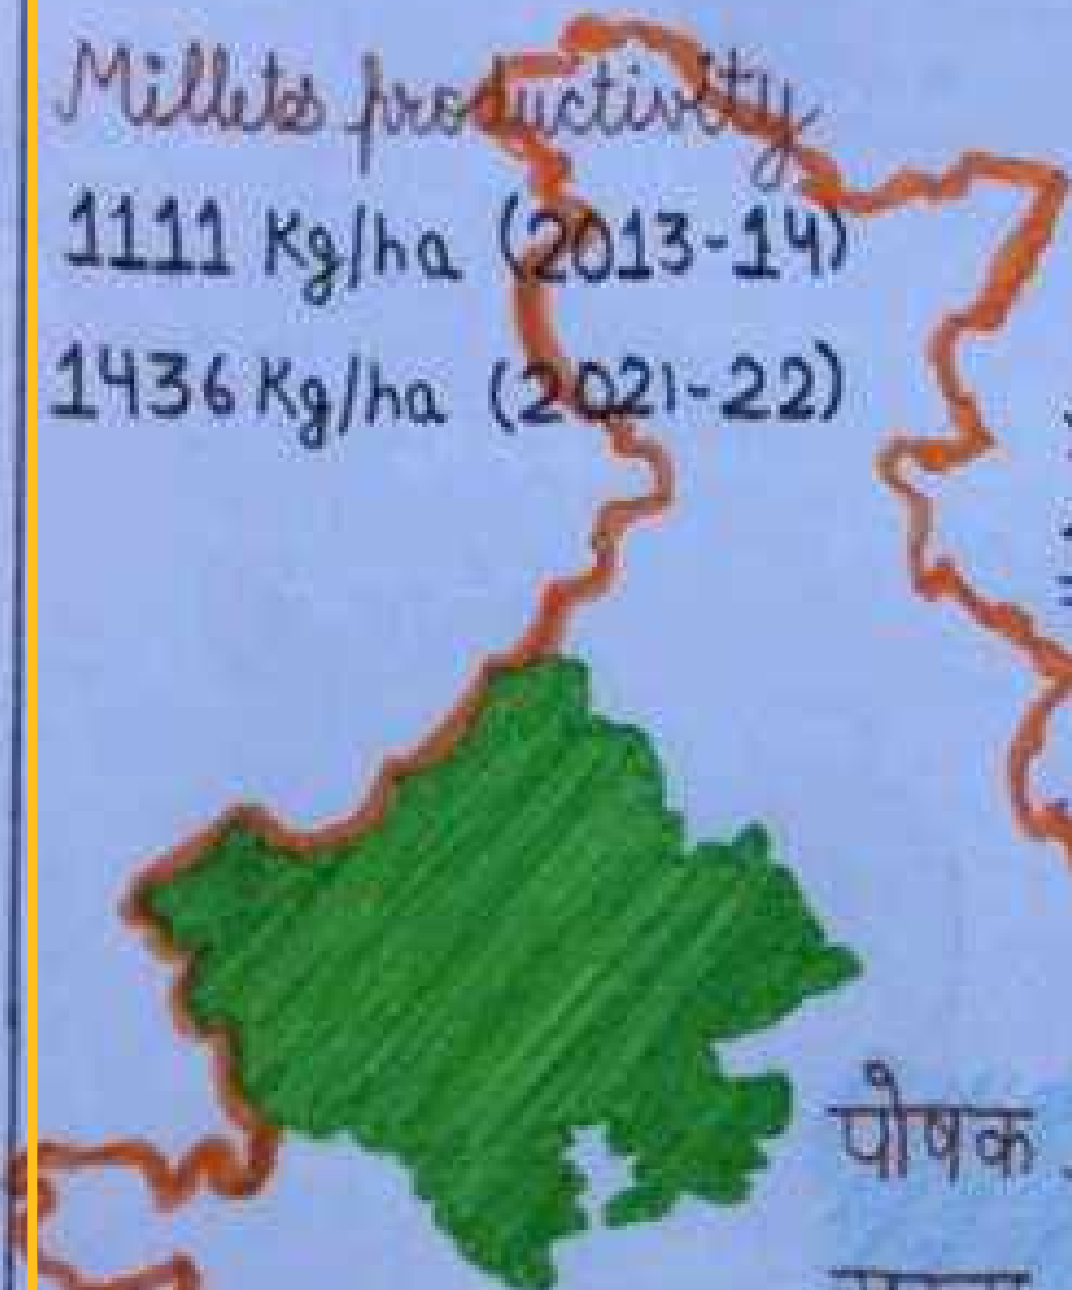 Millets productivity
1111 Kg/ha (2013-14)
1436 Kg/ha (2021-22)
पोषक